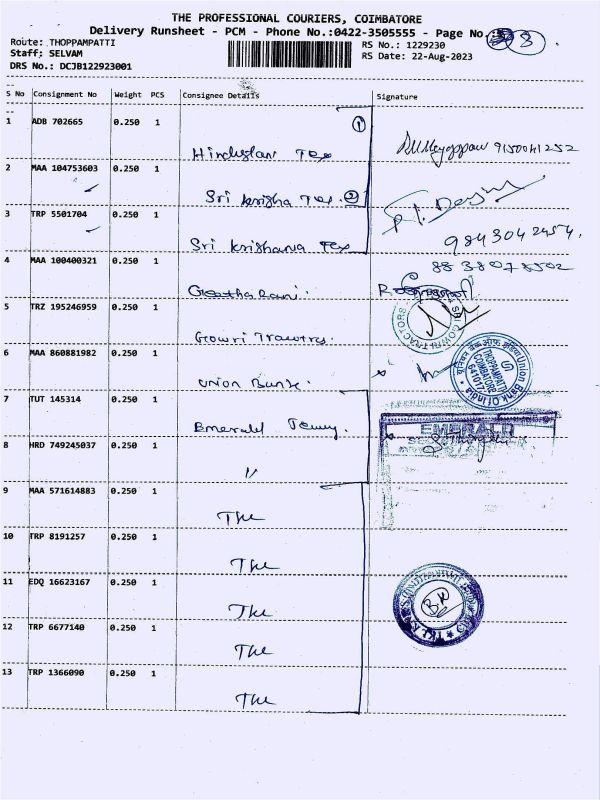 THE PROFESSIONAL COURIERS, COIMBATORE
Delivery Runsheet - PCM - Phone No.:0422-3505555 - Page No. 3
Route: THOPPAMPATTI RS No.: 1229230
Staff; SELVAM RS Date: 22-Aug-2023
DRS No.: DCJB122923001
S No Consignment No Weight PCS Consignee Details Signature
1 ADB 702665 0.250 1 ①
Hindustan Tex 9150041252
2 MAA 104753603 0.250 1
Sri krisha Tex. ②
3 TRP 5501704 0.250 1 9843042454.
Sri krishana Tex
4 MAA 100400321 0.250 1 88 38078502
Geetha Rani.
5 TRZ 195246959 0.250 1
Gowri
6 MAA 860881982 0.250 1 Union Bank Of India
THOPPAMPATTI
COIMBATORE
641017
Union Bank.
7 TUT 145314 0.250 1
Emerald EMERALD
8 HRD 749245037 0.250 1
11
9 MAA 571614883 0.250 1
The
10 TRP 8191257 0.250 1
The
11 EDQ 16623167 0.250 1
The
12 TRP 6677140 0.250 1
The
13 TRP 1366090 0.250 1
The